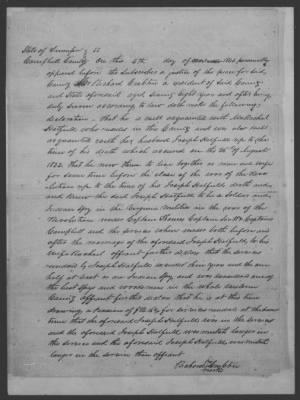 State of Tennessee } SS
Campbell County On this 4th day of 1844 personally
appeared before the Subscriber a justice of the peace for Said
County Richard Crabtree a resident of Said County
and State aforesaid aged Seventy Eight years and after being
duly Sworn according to law doth make the following
declaration. That he is well acquainted with
Hatfield who resides in this County and was also well
acquainted with her husband Joseph Hatfield up to the
time of his death which occured on the 26th of August
1832. That he new them to live together as man and wife
for some time before the close of the war of the Revo
lution up to the time of his Joseph Hatfields death and
and knew the said Joseph Hatfield to be a Soldier and
Indian Spy in the Virginia Militia in the war of the
Revolution under Captain Captain Captain
Campbell and the service when under both before and
after the marriage of the aforesaid Joseph Hatfield to his
wife Rachel affiant further states that the service
rendered by Joseph Hatfield exceeded three years and one
half at least as an Indian Spy and was considered one of
the best Spys and woodsman in the whole
County Affiant further states that he is at this time
drawing a Pension of for services rendered at the same
time that the aforesaid Joseph Hatfield was in the service
and the aforesaid Joseph Hatfield was much longer in
the service and the aforesaid Joseph Hatfield was much
longer in the service than affiant
Richard Crabtree
mark